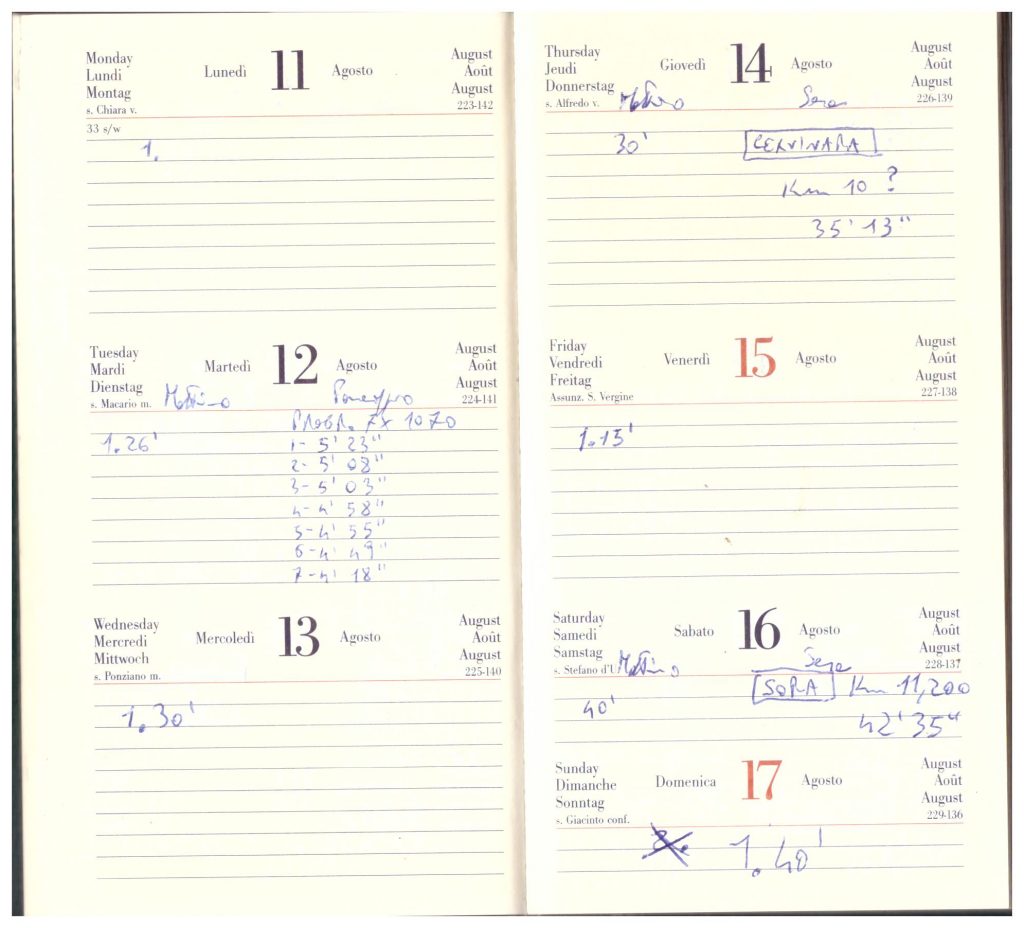 Monday
Lundi
Montag
Lunedì 11 Agosto
August
Août
August
s. Chiara v. 223-142
33 s/w
1.
Tuesday
Mardi
Dienstag
Martedì 12 Agosto
August
Août
August
s. Macario m. Mattino Pomeriggio 224-141
PROGR. 7x 1070
1.26'
1- 5' 23"
2- 5' 08"
3- 5' 03"
4- 4' 58"
5- 4' 55"
6- 4' 49"
7- 4' 18"
Wednesday
Mercredi
Mittwoch
Mercoledì 13 Agosto
August
Août
August
s. Ponziano m. 225-140
1.30'
Thursday
Jeudi
Donnerstag
Giovedì 14 Agosto
August
Août
August
s. Alfredo v. Mattino Sera 226-139
30' CERVINARA
Km 10 ?
35' 13"
Friday
Vendredi
Freitag
Venerdì 15 Agosto
August
Août
August
Assunz. S. Vergine 227-138
1.15'
Saturday
Samedi
Samstag
Sabato 16 Agosto
August
Août
August
s. Stefano d'U Mattino Sera 228-137
40' SORA Km 11,200
42' 35"
Sunday
Dimanche
Sonntag
Domenica 17 Agosto
August
Août
August
s. Giacinto conf. 229-136
1.40'